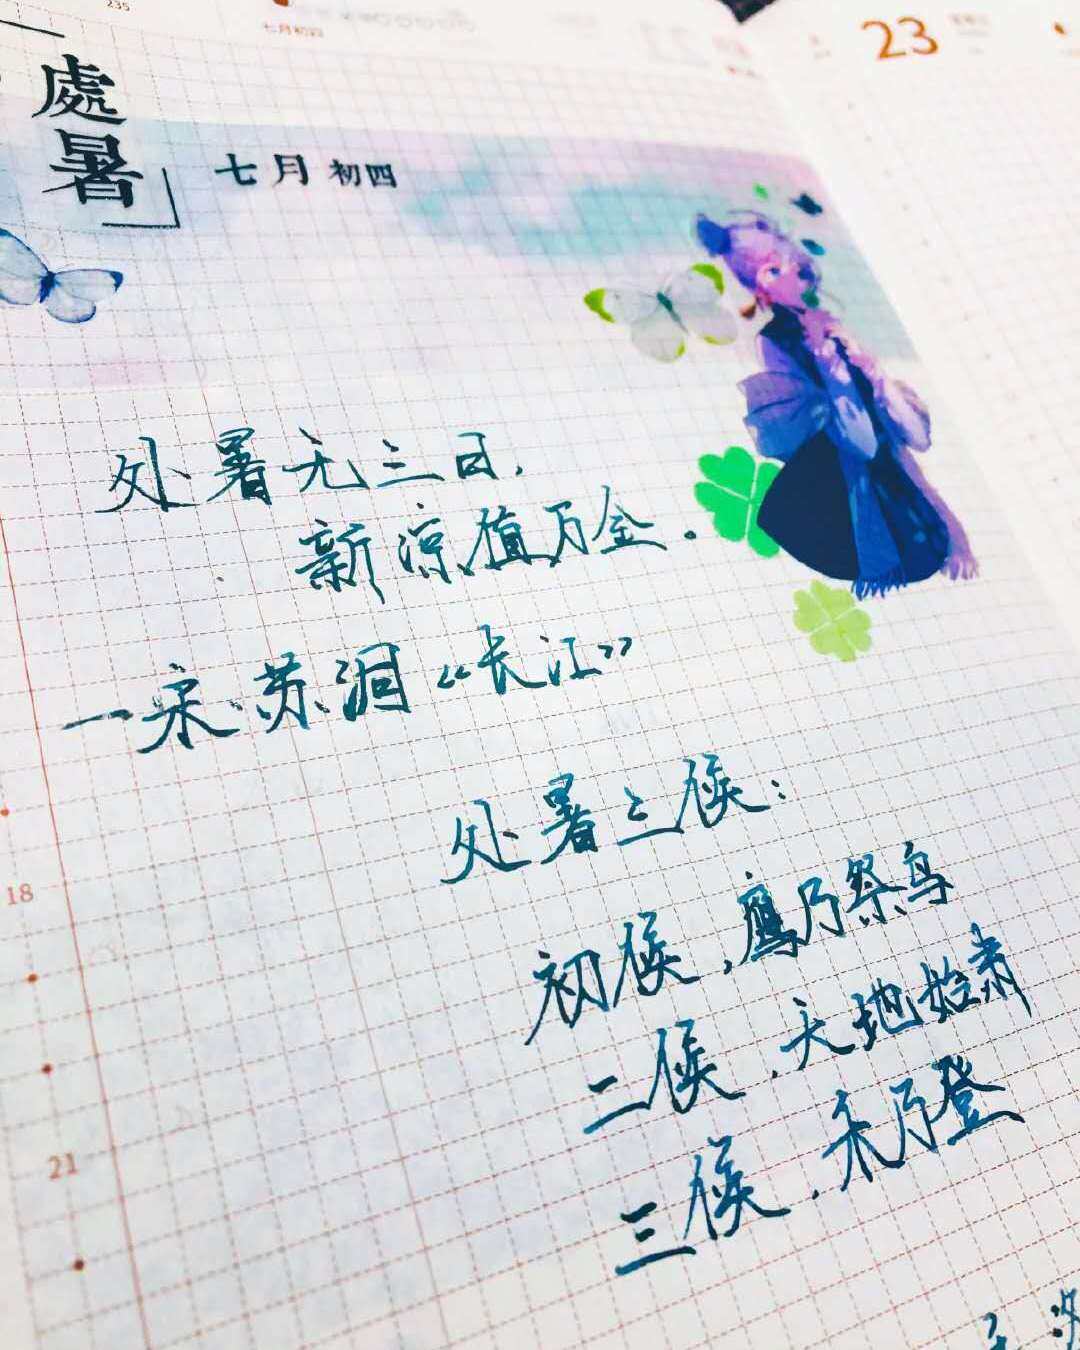 235
七月初四
23
處暑
七月初四
处暑无三日，
新凉值万金。
—宋·苏泂《长江》
处暑三候：
初候，鹰乃祭鸟
二候，天地始肃
三候，禾乃登
18
21